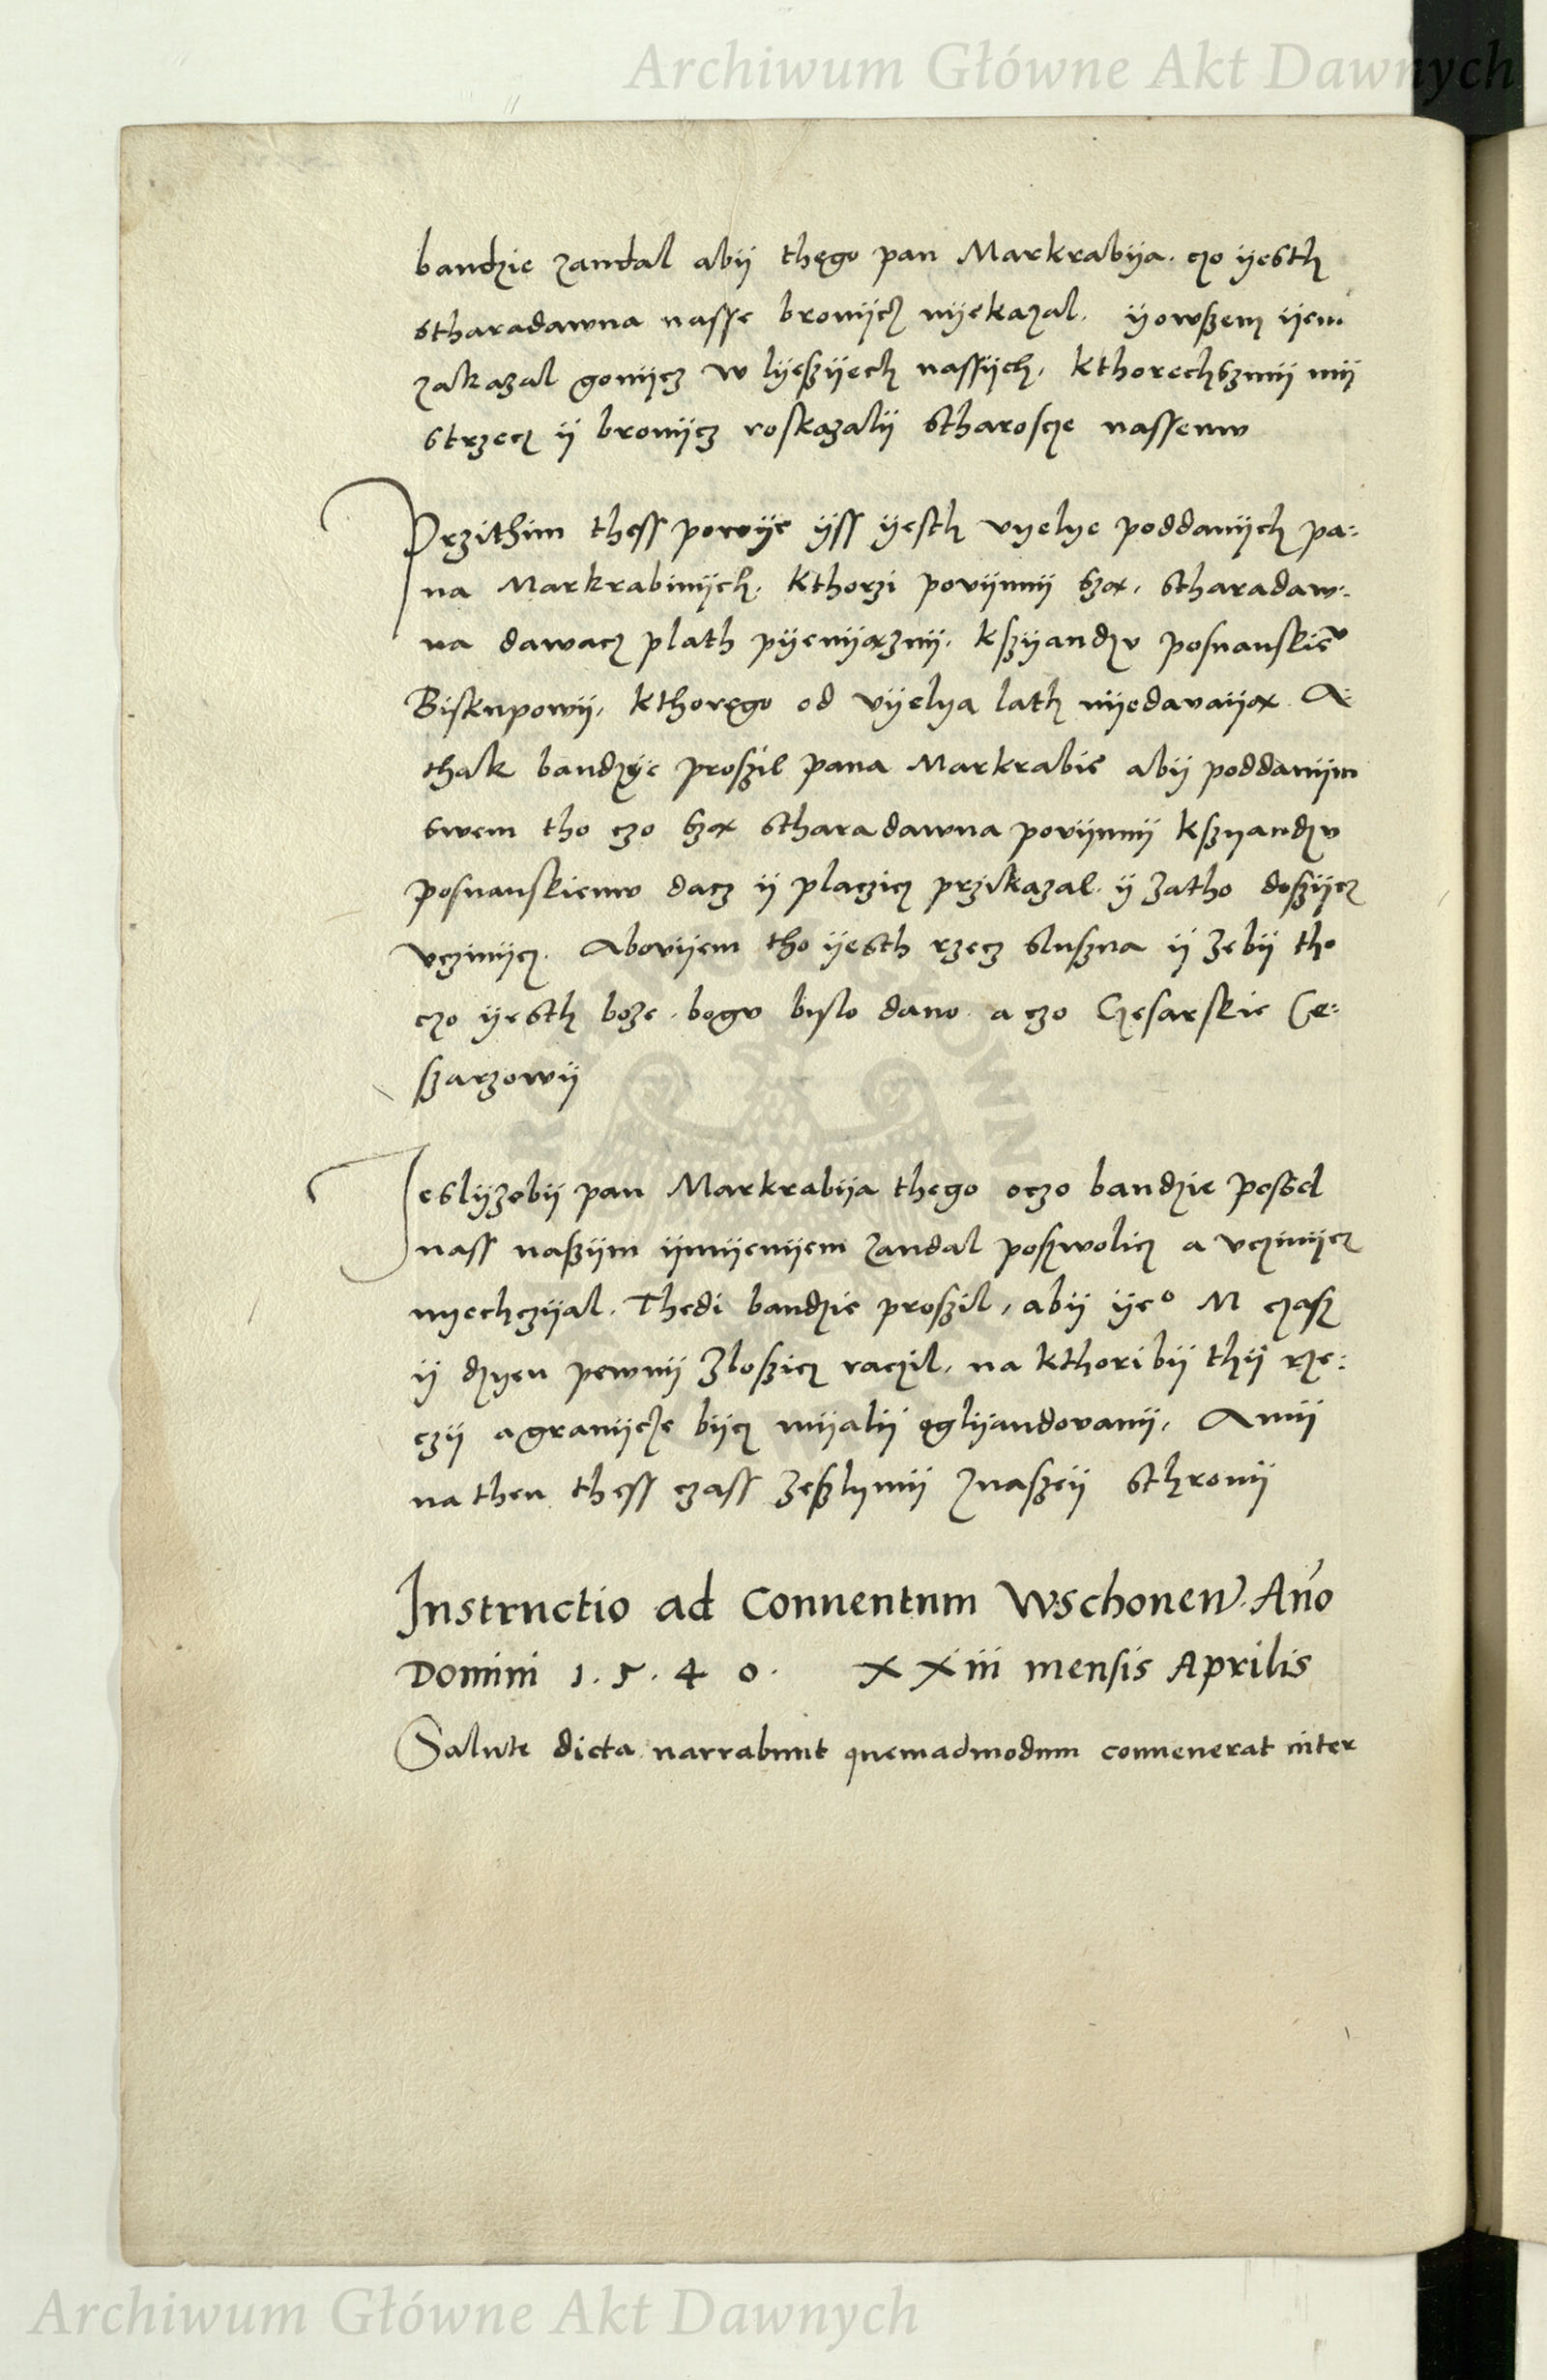 Archiwum Główne Akt Dawnych
bandzie ządal abÿ thęgo pan Markrabÿa. czo ÿesth
stharadawna nasse bronÿcz nÿekazal. ÿ owszem ÿem
zakazal gonÿcz w lÿeszÿech nassÿch, kthorechszmÿ mÿ
strzecz ÿ bronÿcz roskazalÿ stharoscze nassemu
Przithim thess powÿe ÿss ÿesth vyelye poddanÿch pa:
na Markrabinÿch, kthorzi povÿnnÿ szą, stharadaw:
na dawacz plath pÿenÿąznÿ, kszÿandzu posnanskieº
Biskupowÿ, kthoręgo od vÿelya lath nÿedavaÿą. A
thak bandzÿe proszil pana Markrabie abÿ poddanÿm
swem tho czo szą stharadawna povÿnnÿ kszyandzu
posnanskiemu dacz ÿ placzicz przikazal. ÿ zatho doszÿcz
vczinÿcz. Abovÿem tho ÿesth rzecz sluszna ÿ zebÿ tho
czo ÿesth boze. bogu bislo dano. a czo Czesarskie Ce:
szarzowÿ
Jeslÿzebÿ pan Markrabÿa thego oczo bandzie posel
nass naszÿm ÿmÿenÿem ządal poszwolicz a vczinÿcz
nyechczÿal. Thedi bandzie proszil, abÿ ÿeº M czasz
ÿ dzyen pewnÿ zloszicz raczil, na kthori bÿ thÿ rze:
czÿ agranÿcze bÿcz mÿalÿ oglÿandovanÿ, Amÿ
na then thess czass zeszlymÿ znaszeÿ sthronÿ
Instructio ad Conuentum Wschonen. Año
Domini 1.5.4 0. XXiii mensis Aprilis
Salute dicta narrabunt quemadmodum conuenerat inter
Archiwum Główne Akt Dawnych